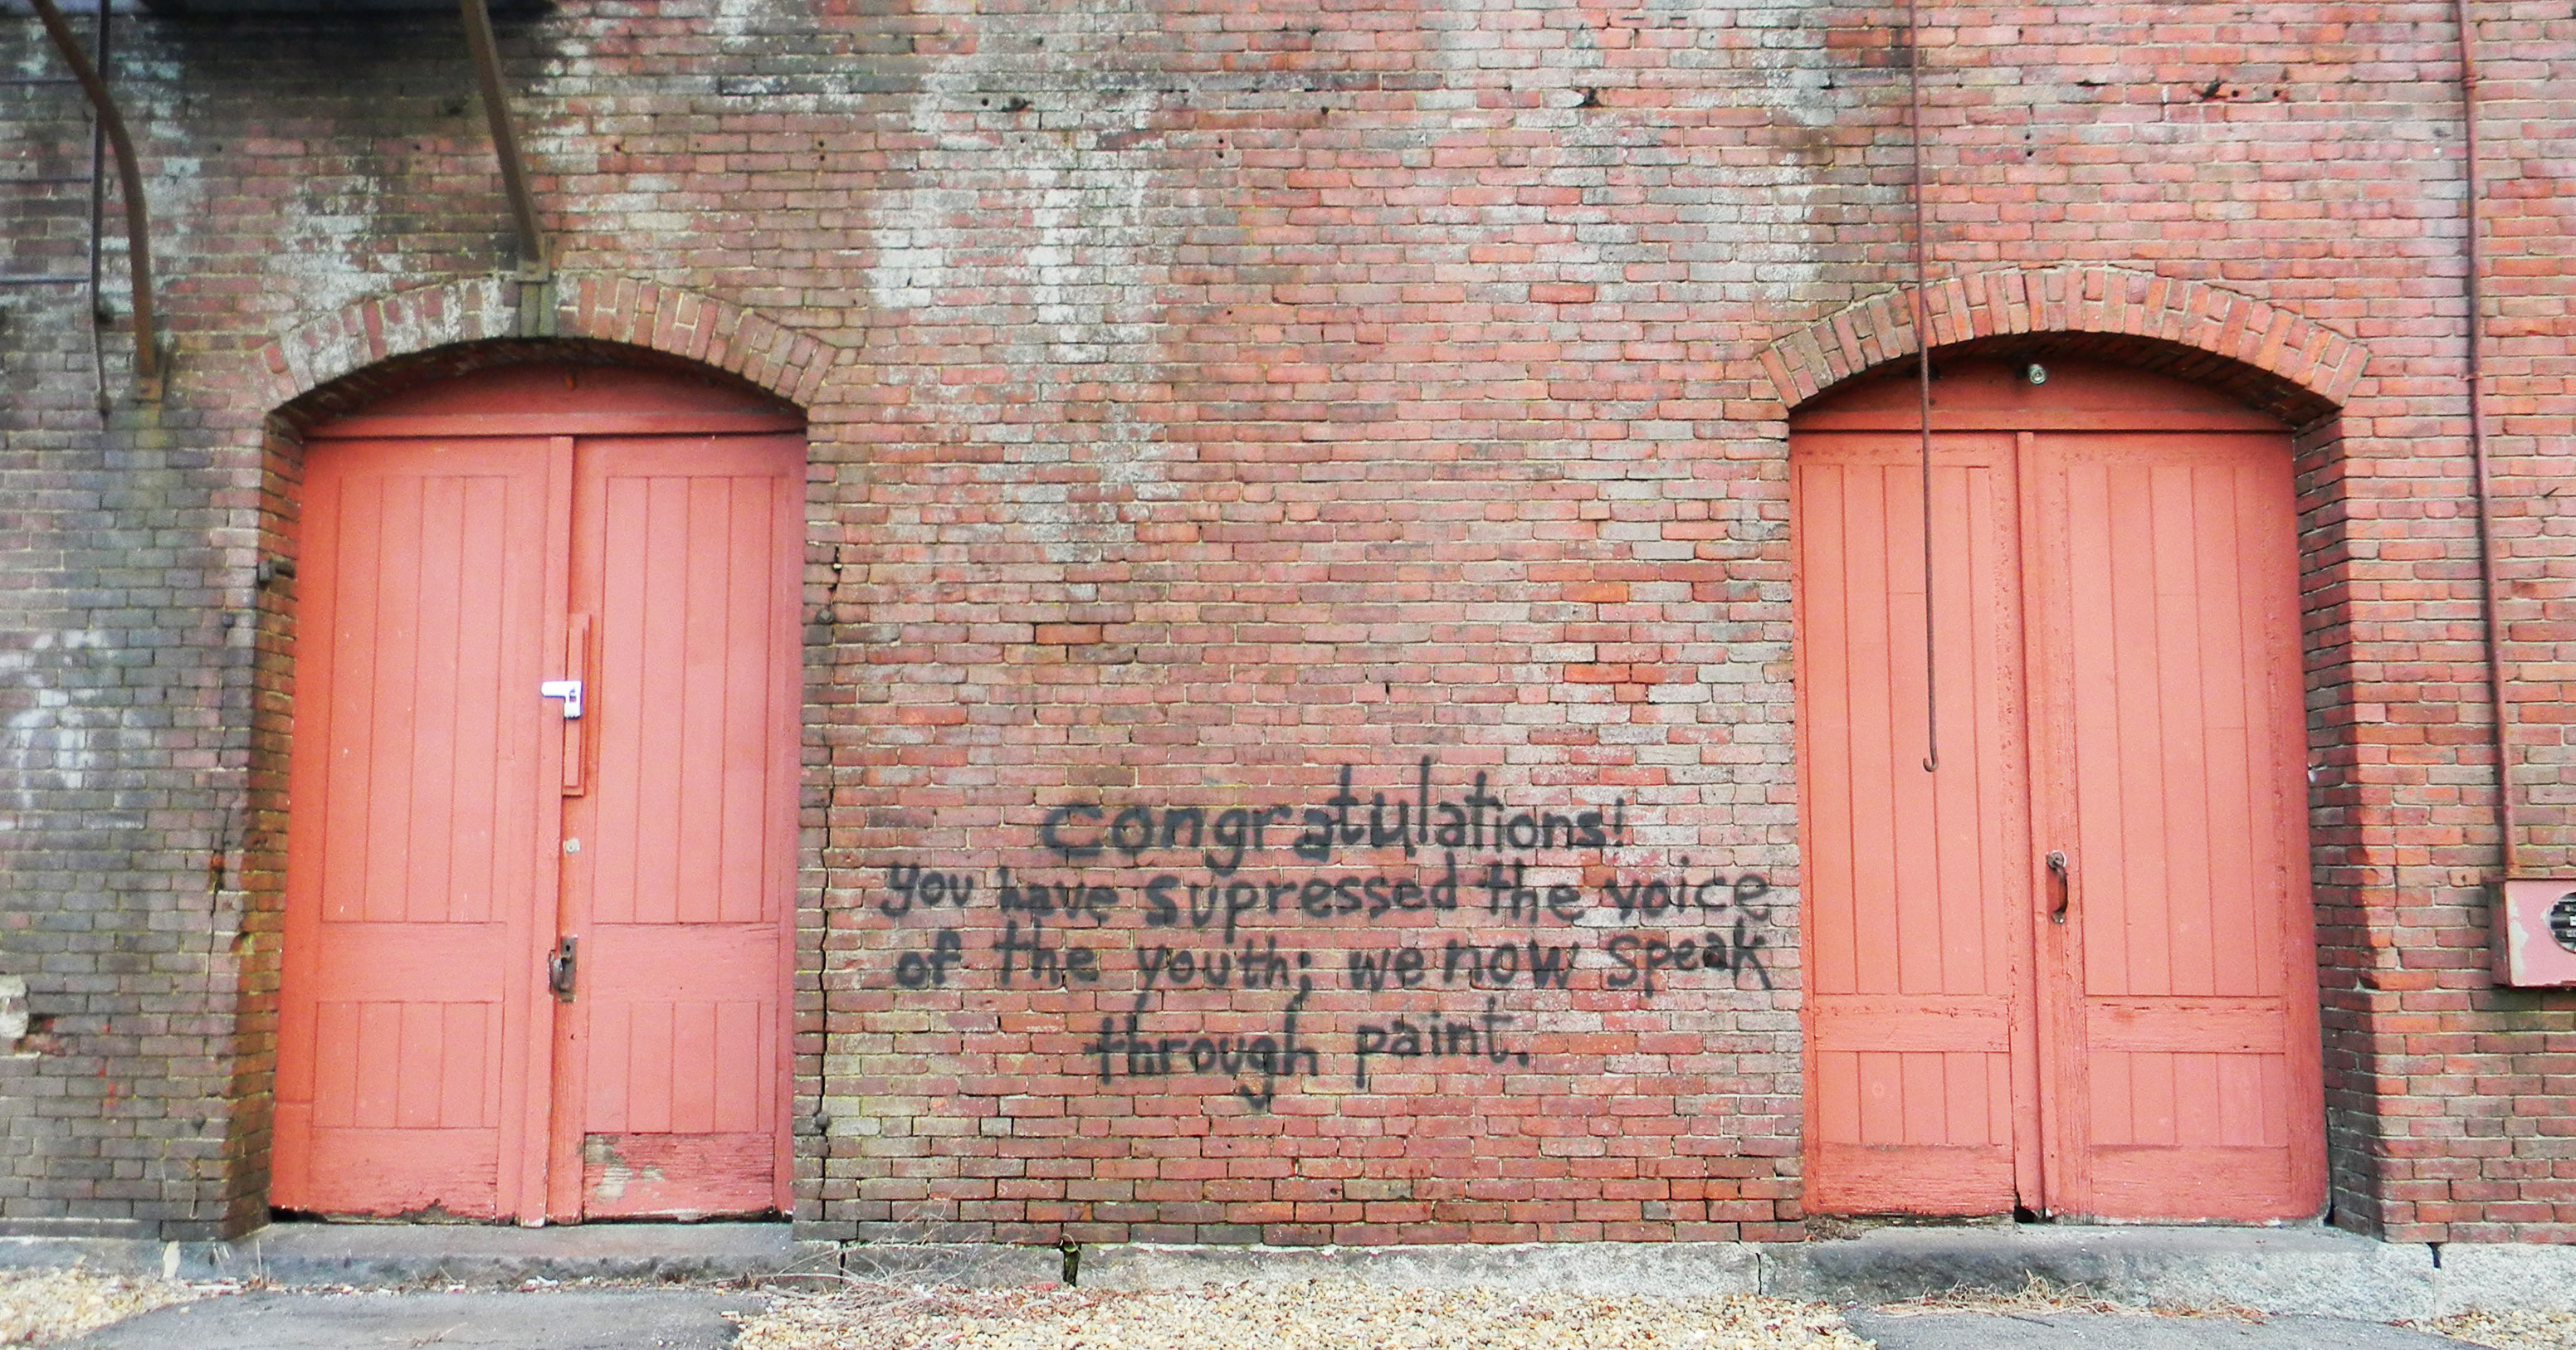 Congratulations!
you have supressed the voice
of the youth; we now speak
through paint.